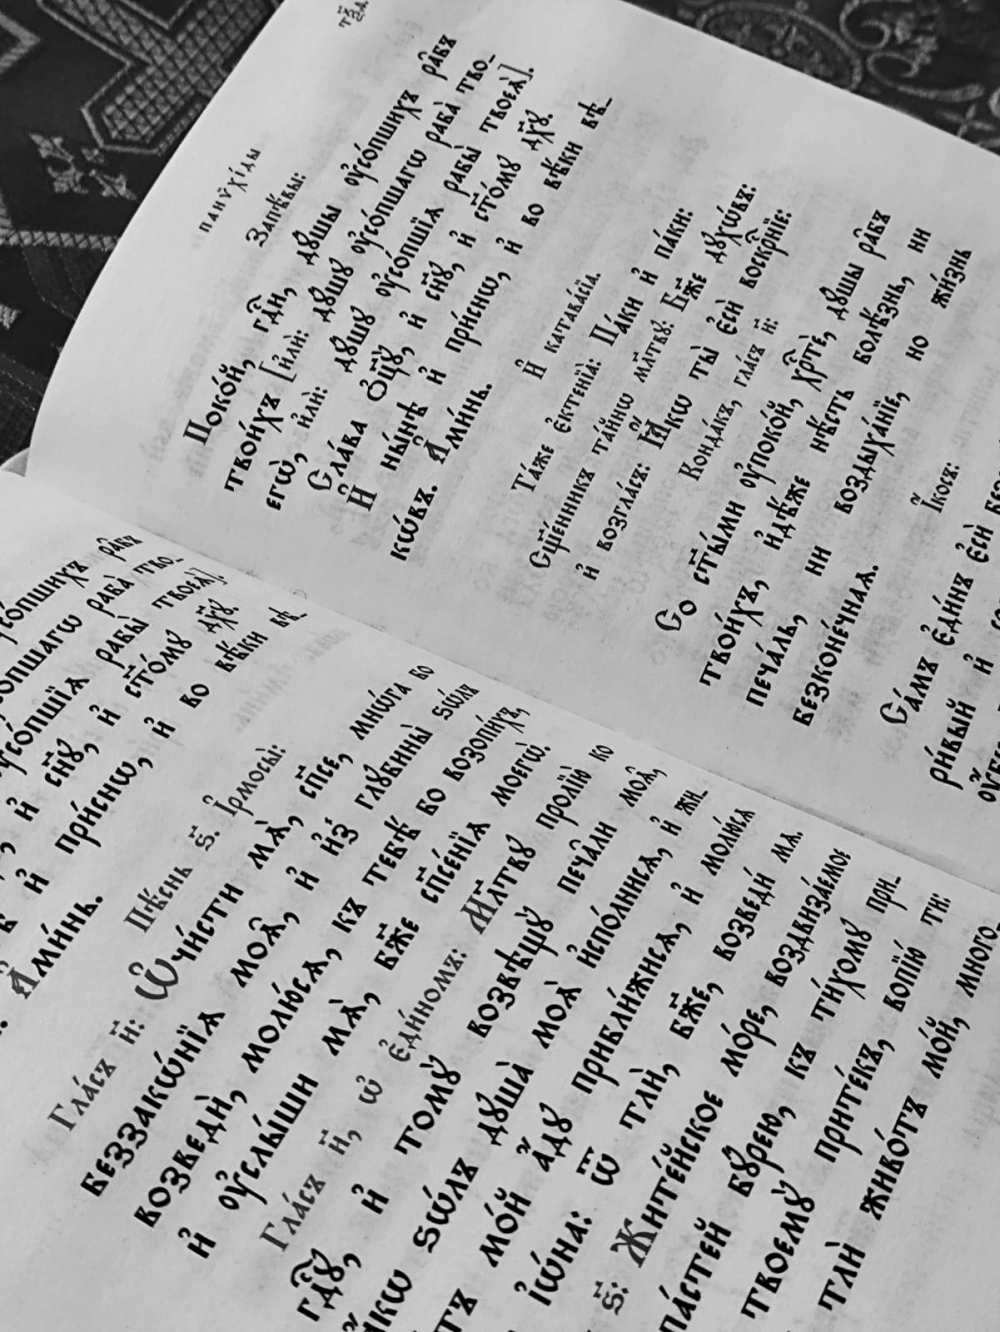 оу҆со́пшихъ ра̑бъ
со́пшагѡ раба̀ тво-
оу҆со́пшїѧ рабы̀ твоеѧ̀].
и҆ сн҃ꙋ, и҆ ст҃о́мꙋ дх҃ꙋ.
и҆ при́снѡ, и҆ во вѣ́ки вѣ-
А҆ми́нь.
Пѣ́снь ѕ҃. І҆рмосы̀:
Гла́съ и҃: Ѡ҆чи́сти мѧ̀, сп҃се, мнѡ́га бо
беззакѡ́нїѧ моѧ̑, и҆ и҆з̾ глꙋбины̀ ѕѡ́лъ
возведѝ, молю́сѧ, къ тебѣ́ бо возопи́хъ,
и҆ оу҆слы́ши мѧ̀, бж҃е сп҃се́нїѧ моегѡ̀.
Гла́съ и҃, ѡ҆ є҆ди́номъ: Мл҃твꙋ пролїю̀ ко
гдⷭ҇ꙋ, и҆ томꙋ̀ возвѣщꙋ̀ печа̑ли моѧ̑,
ꙗ҆́кѡ ѕѡ́лъ дꙋша̀ моѧ̀ и҆спо́лнисѧ, и҆ жи-
во́тъ мо́й а҆́дꙋ прибли́жисѧ, и҆ молю́сѧ
І҆ѡ́на: ѿ тлѝ, бж҃е, возведи́ мѧ.
ѕ҃: Жите́йское мо́ре, воздвиза́емое
па́стей бꙋ́рею, къ ти́хомꙋ при-
твоемꙋ̀ прите́къ, вопїю́ ти:
тлѝ живо́тъ мо́й, много
тѯд.
панѷхі́ды
Запѣ́вы:
Поко́й, гдⷭ҇и, дꙋ́шы оу҆со́пшихъ ра̑бъ
твои́хъ [и҆лѝ: дꙋ́шꙋ оу҆со́пшагѡ раба̀ тво-
егѡ̀, и҆лѝ: дꙋ́шꙋ оу҆со́пшїѧ рабы̀ твоеѧ̀].
Сла́ва ѻ҆ц҃ꙋ̀, и҆ сн҃ꙋ, и҆ ст҃о́мꙋ дх҃ꙋ.
И҆ ны́нѣ и҆ при́снѡ, и҆ во вѣ́ки вѣ-
кѡ́въ. А҆ми́нь.
И҆ катава́сїа.
Та́же є҆ктенїа̀: Па́ки и҆ па́ки:
Сщ҃е́нникъ та́йнѡ мл҃твꙋ: Бж҃е дꙋхѡ́въ:
и҆ возгла́съ: Ꙗ҆́кѡ ты̀ є҆сѝ воскрⷭ҇нїе:
Конда́къ, гла́съ и҃:
Со ст҃ы́ми оу҆поко́й, хрⷭ҇тѐ, дꙋ́шы ра̑бъ
твои́хъ, и҆дѣ́же нѣ́сть болѣ́знь, ни
печа́ль, ни воздыха́нїе, но жи́знь
безконе́чнаѧ.
І҆́косъ:
Са́мъ є҆ди́нъ є҆сѝ без
ри́вый и҆